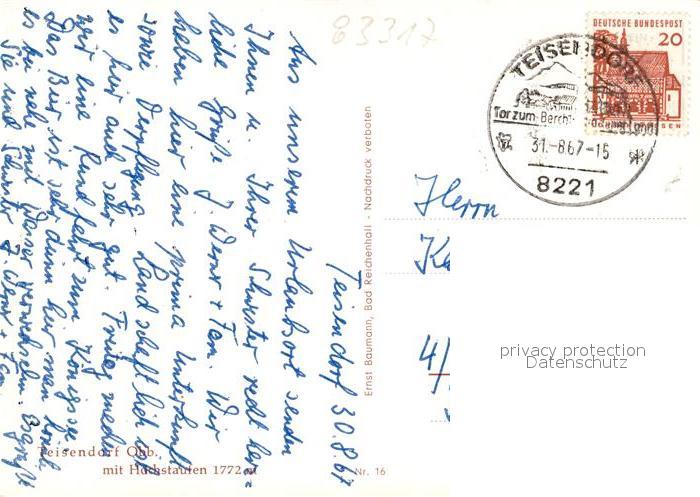 83317
DEUTSCHE BUNDESPOST
20
TEISENDORF
Tor zum Bercht
31.-8.67-15
8221
Teisendorf 30.8.67
Aus unserem Urlaubsort senden
Ihnen u. Ihrer Schwester recht herz=
liche Grüße J. Werner + Fam. Wir
haben hier eine prima Unterkunft
sowie Verpflegung. Landschaftlich ist
es hier auch sehr gut. Freitag machen
wir eine Rundfahrt zum Königssee
Das Bier ist sehr dünn hier man könnte
es bei nahe mit Wasser verwechseln. Es grüßt
Sie und Schwester J. Werner + Fam.
Herrn
4/
Ernst Baumann, Bad Reichenhall - Nachdruck verboten
privacy protection
Datenschutz
Teisendorf Obb.
mit Hochstaufen 1772 m
Nr. 16